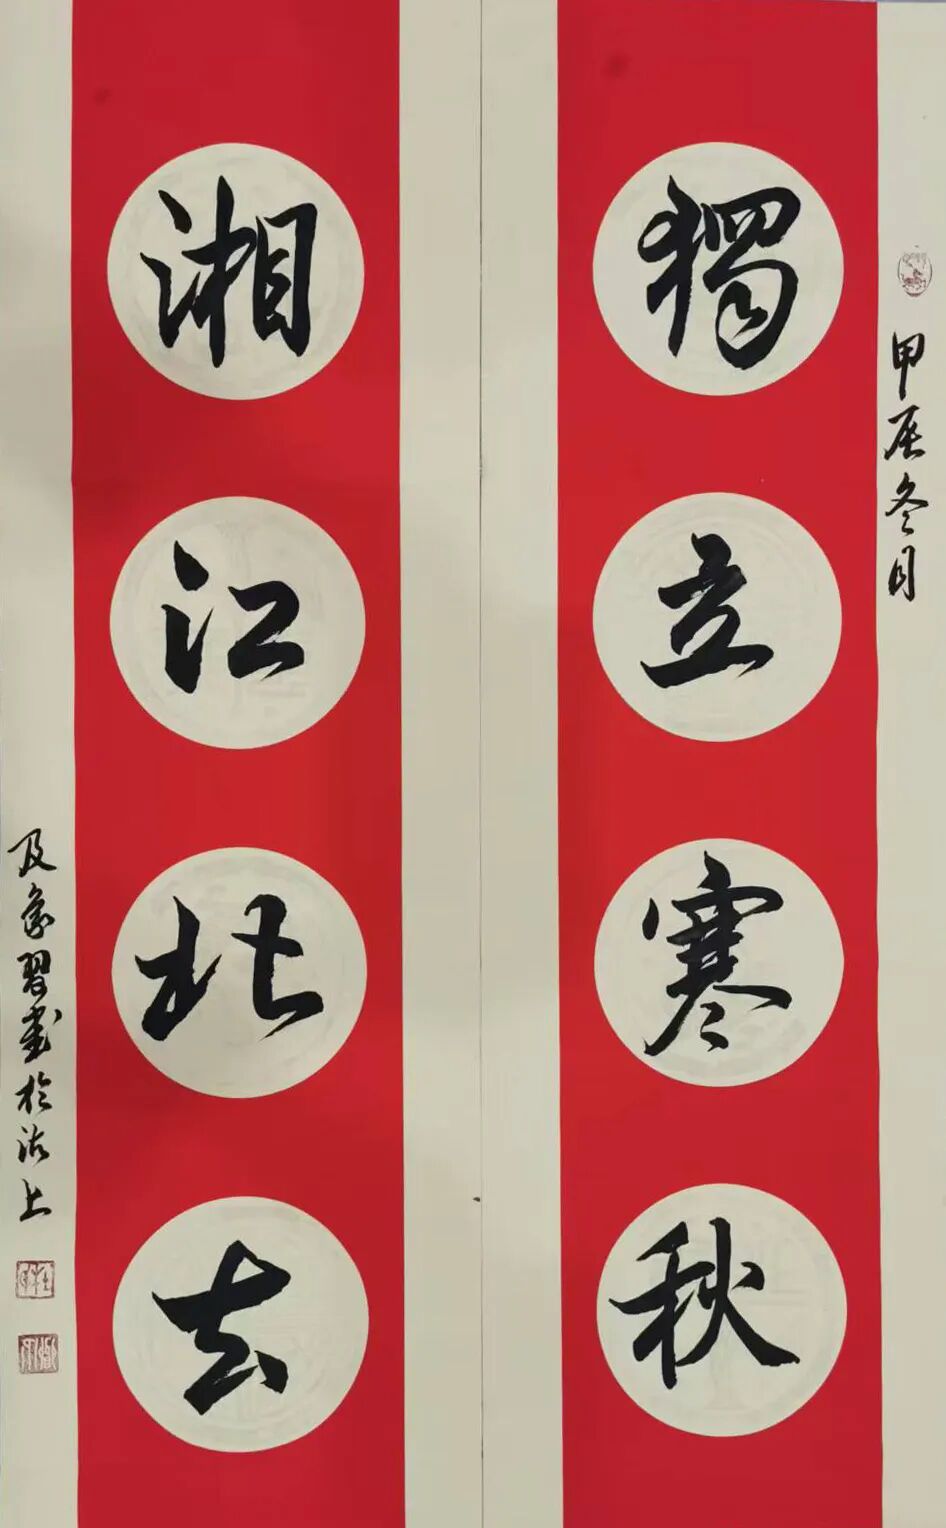 獨立寒秋
湘江北去
甲辰冬月
習書於沽上